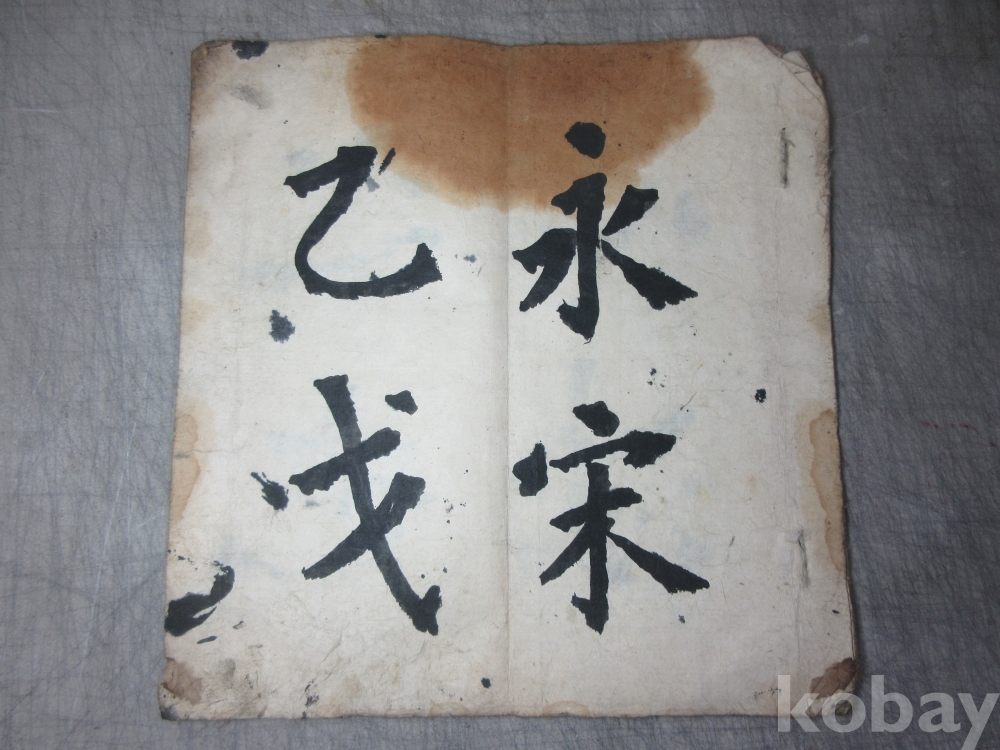 永宋
乙戈
kobay